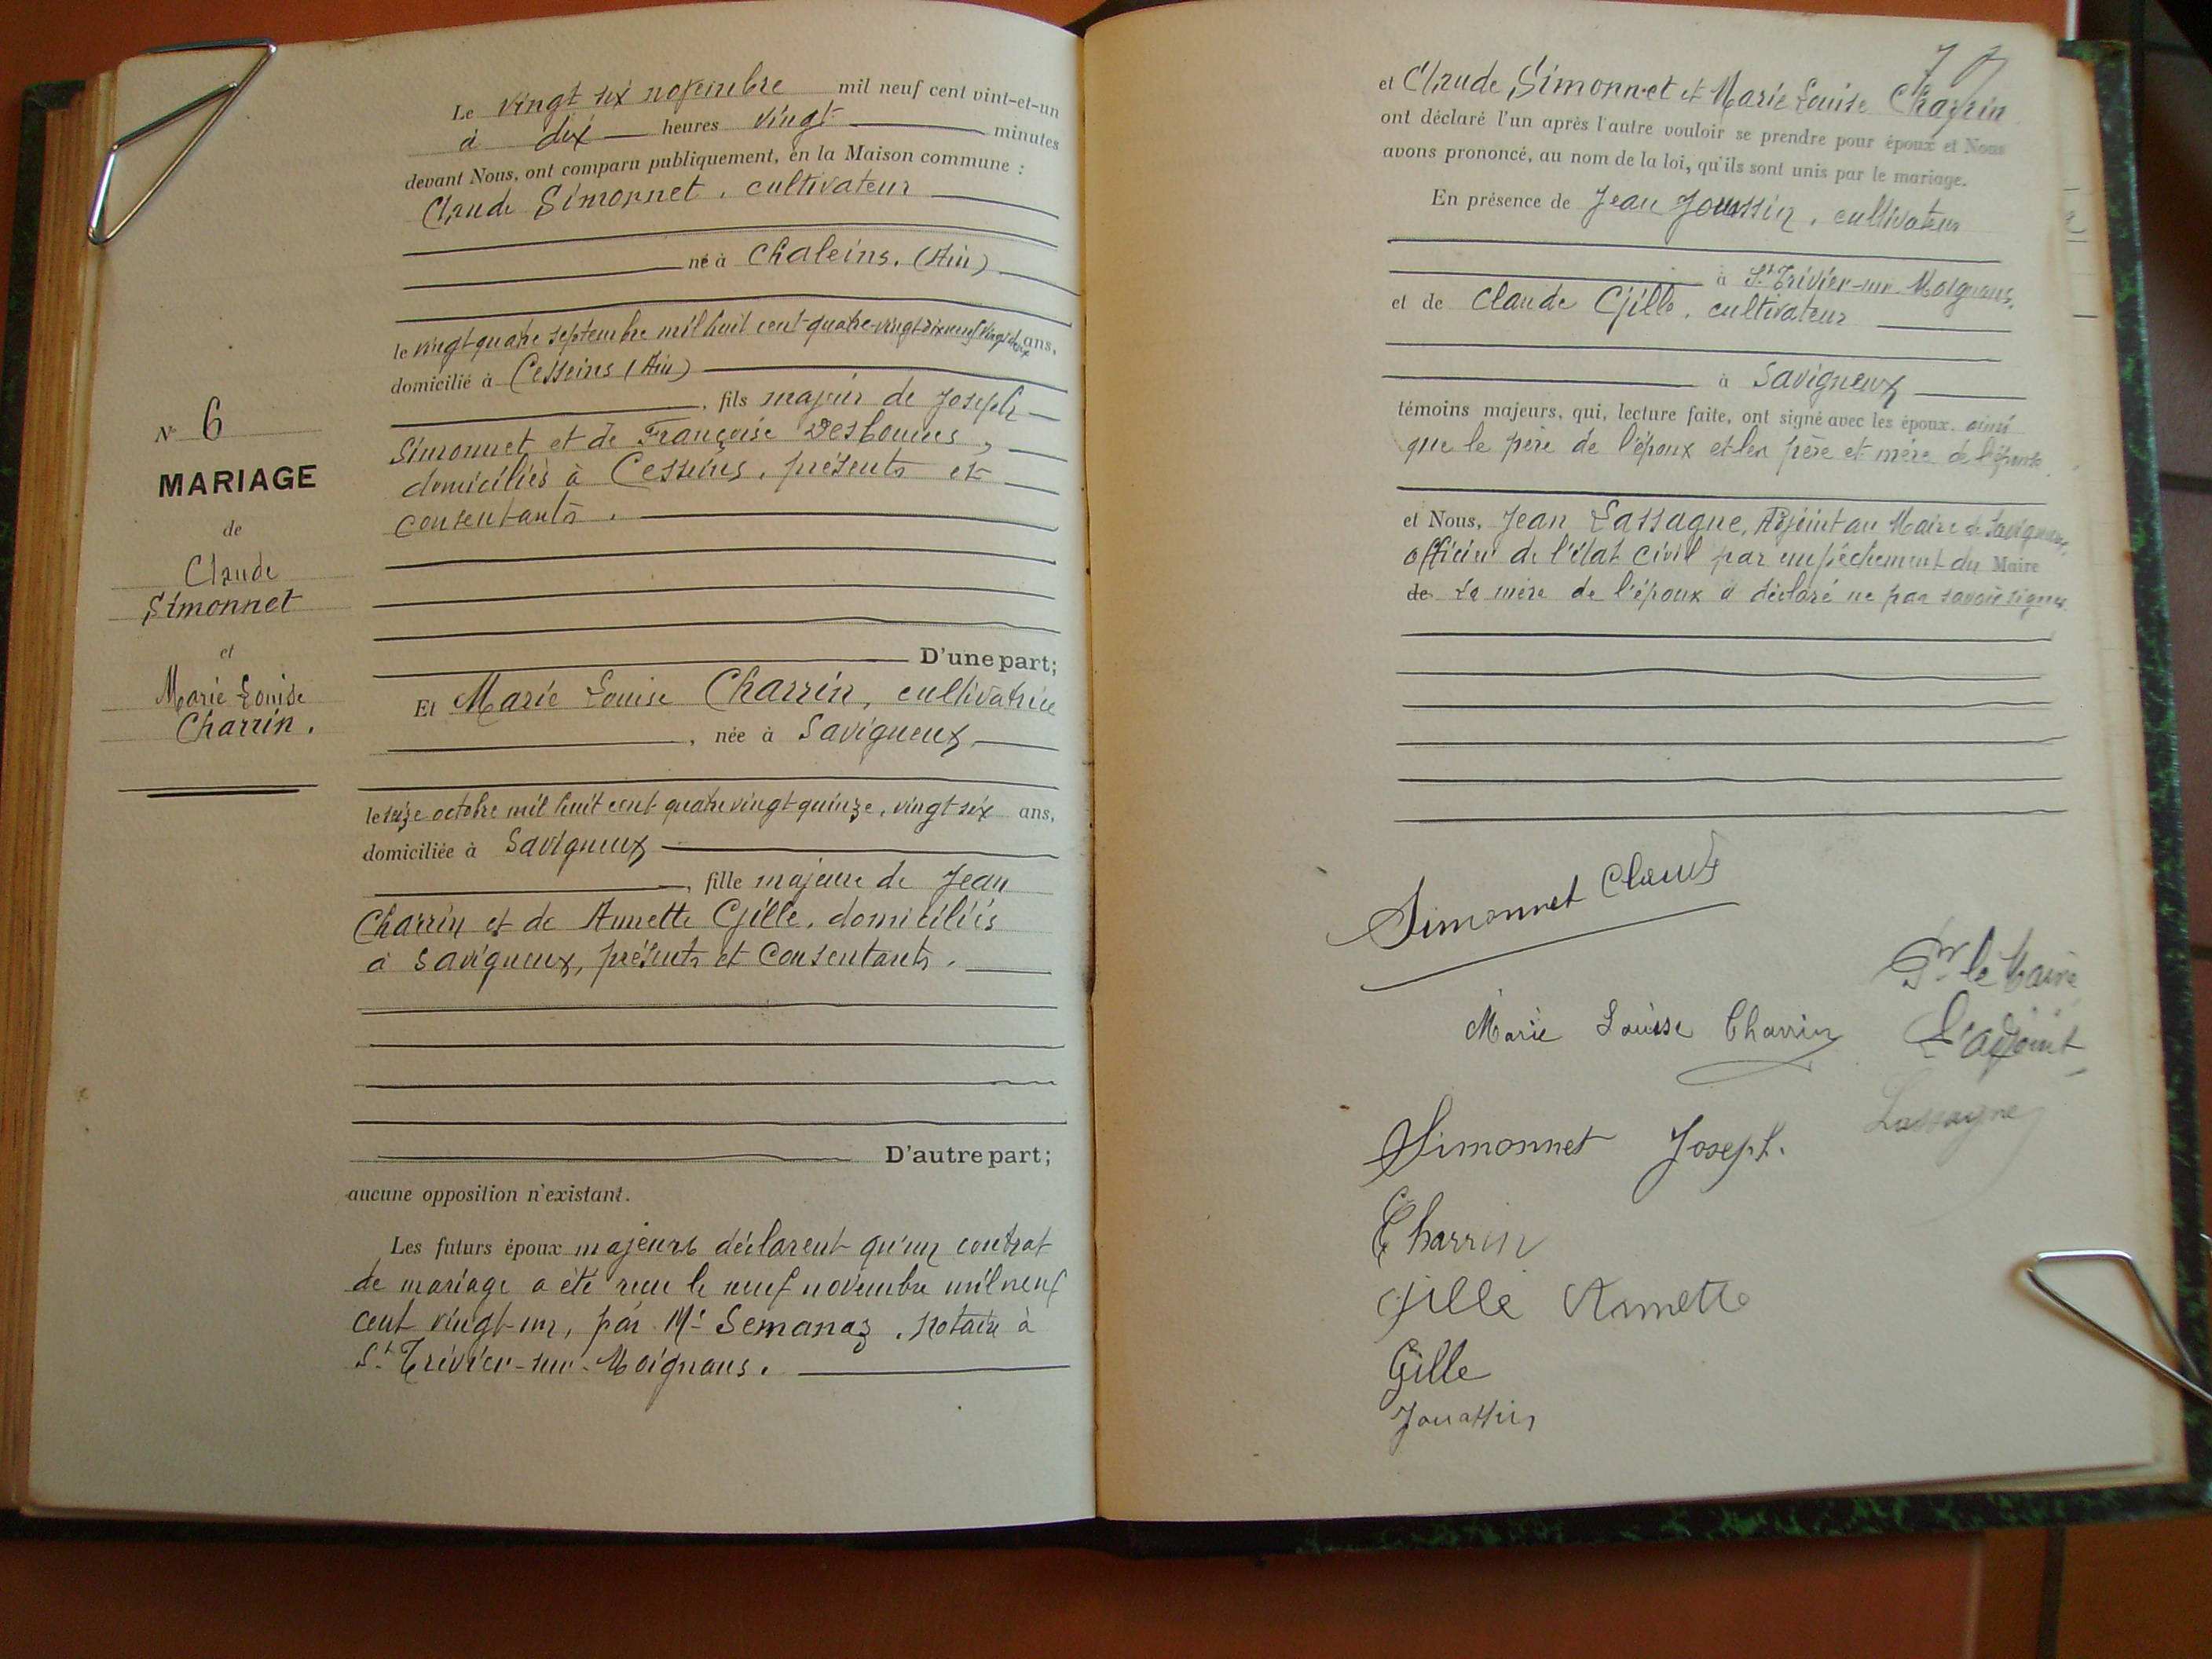 N° 6
MARIAGE
de
Claude
Simonnet
et
Marie Louise
Charrin.
Le vingt six novembre mil neuf cent vint-et-un
à dix heures vingt minutes
devant Nous, ont comparu publiquement, en la Maison commune :
Claude Simonnet, cultivateur
né à Chaleins. (Ain)
le vingt-quatre septembre mil huit cent quatre-vingt-dix neuf vingt deux ans,
domicilié à Cesseins (Ain)
, fils majeur de Joseph
Simonnet et de Françoise Desbouins,
domiciliés à Cesseins, présents et
consentants.
D'une part;
Et Marie Louise Charrin, cultivatrice
, née à Savigneux
le seize octobre mil huit cent quatre vingt-quinze, vingt-six ans,
domiciliée à Savigneux
, fille majeure de Jean
Charrin et de Annette Gille, domiciliés
à Savigneux, présents et consentants.
D'autre part;
aucune opposition n'existant.
Les futurs époux majeurs déclarent qu'un contrat
de mariage a été reçu le neuf novembre mil neuf
cent vingt-un, par Me Semanaz, notaire à
St Trivier-sur-Moignans.
et Claude Simonnet et Marie Louise Charrin
ont déclaré l'un après l'autre vouloir se prendre pour époux et Nous
avons prononcé, au nom de la loi, qu'ils sont unis par le mariage.
En présence de Jean Joussin, cultivateur
à St Trivier-sur-Moignans,
et de Claude Gille, cultivateur
à Savigneux
témoins majeurs, qui, lecture faite, ont signé avec les époux, ainsi
que le père de l'époux et les père et mère de l'épouse
et Nous, Jean Lassagne, Adjoint au Maire de Savigneux,
officier de l'état civil par empêchement du Maire
de La mère de l'époux a déclaré ne pas savoir signer
Simonnet Claude
Pr le Maire
Marie Louise Charrin
L'adjoint
Lassagne
Simonnet Joseph.
Charrin
Gille Annette
Gille
Jouassin